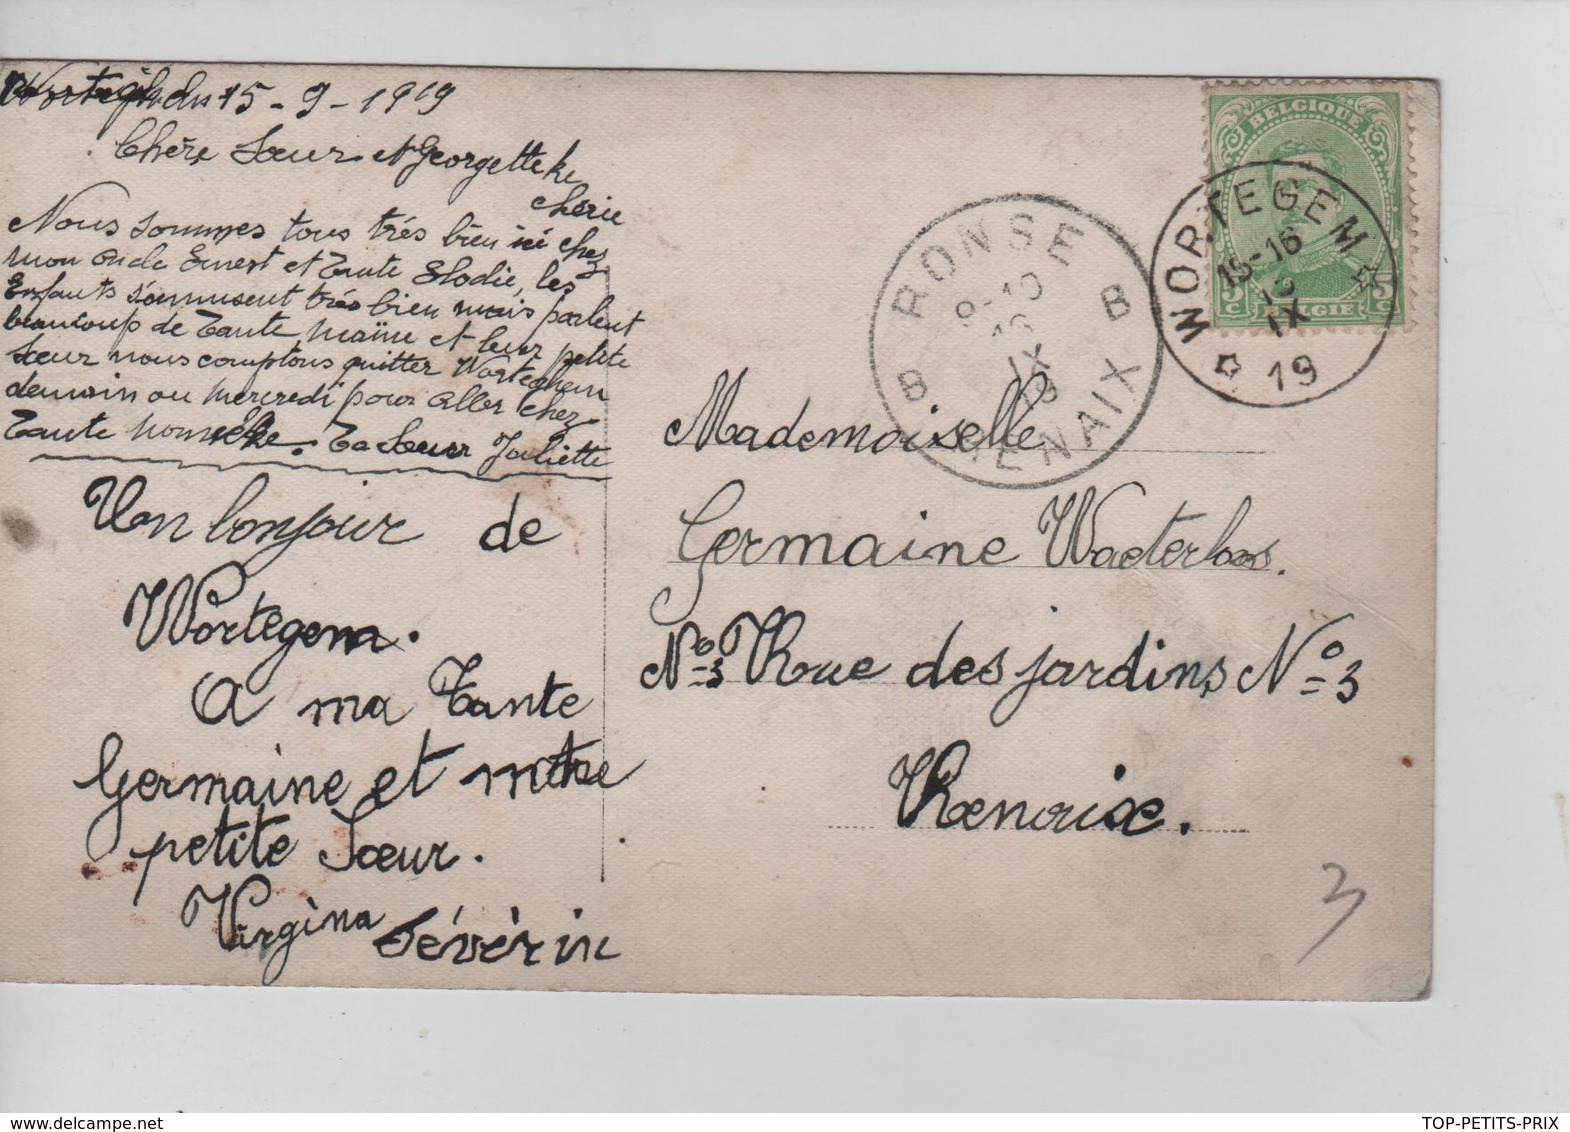 Worteghem du 15-9-1919
Chère Sœur et Georgetteke
chérie
Nous sommes tous très bien ici chez
mon oncle Ernest et Tante Elodie, les
Enfants s'amusent très bien mais parlent
beaucoup de Tante Maïne et leur petite
Sœur nous comptons quitter Worteghem
demain ou mercredi pour aller chez
Tante . Ta Sœur Juliette
Un bonjour de
Wortegem.
A ma Tante
Germaine et notre
petite Sœur.
Virgina Sévèrin
BELGIQUE
5c BELGIE 5c
WORTEGEM
15-16
IX
19
RONSE
9-10
16
IX
19
B B
RENAIX
Mademoiselle
Germaine Waeterloos.
Nº 3 Rue des jardins Nº 3
Renaix.
3
TOP-PETITS-PRIX